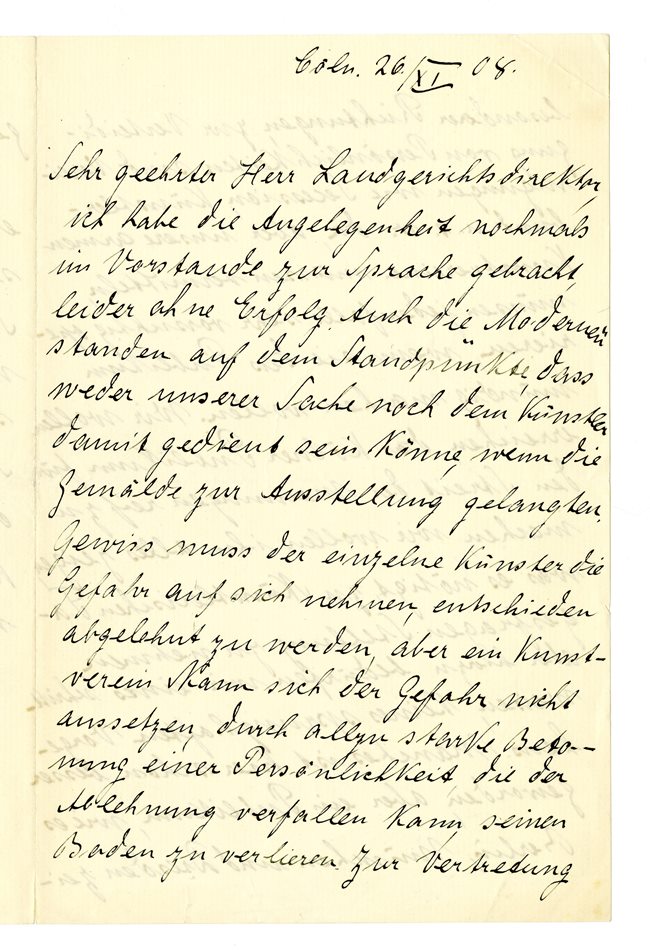 Cöln. 26./XI 08.
Sehr geehrter Herr Landgerichtsdirektor,
ich habe die Angelegenheit nochmals
im Vorstande zur Sprache gebracht,
leider ohne Erfolg. Auch die Modernen
standen auf dem Standpünkte, dass
weder unserer Sache noch dem Künstler
damit gedient sein könne, wenn die
Gemälde zur Ausstellung gelangten.
Gewiss muss der einzelne Künster die
Gefahr auf sich nehmen, entschieden
abgelehnt zu werden, aber ein Kunst-
verein kann sich der Gefahr nicht
aussetzen, durch allzu starke Beto-
nung einer Persönlichkeit, die der
Ablehnung verfallen kann, seinen
Boden zu verlieren. Zur Vertretung